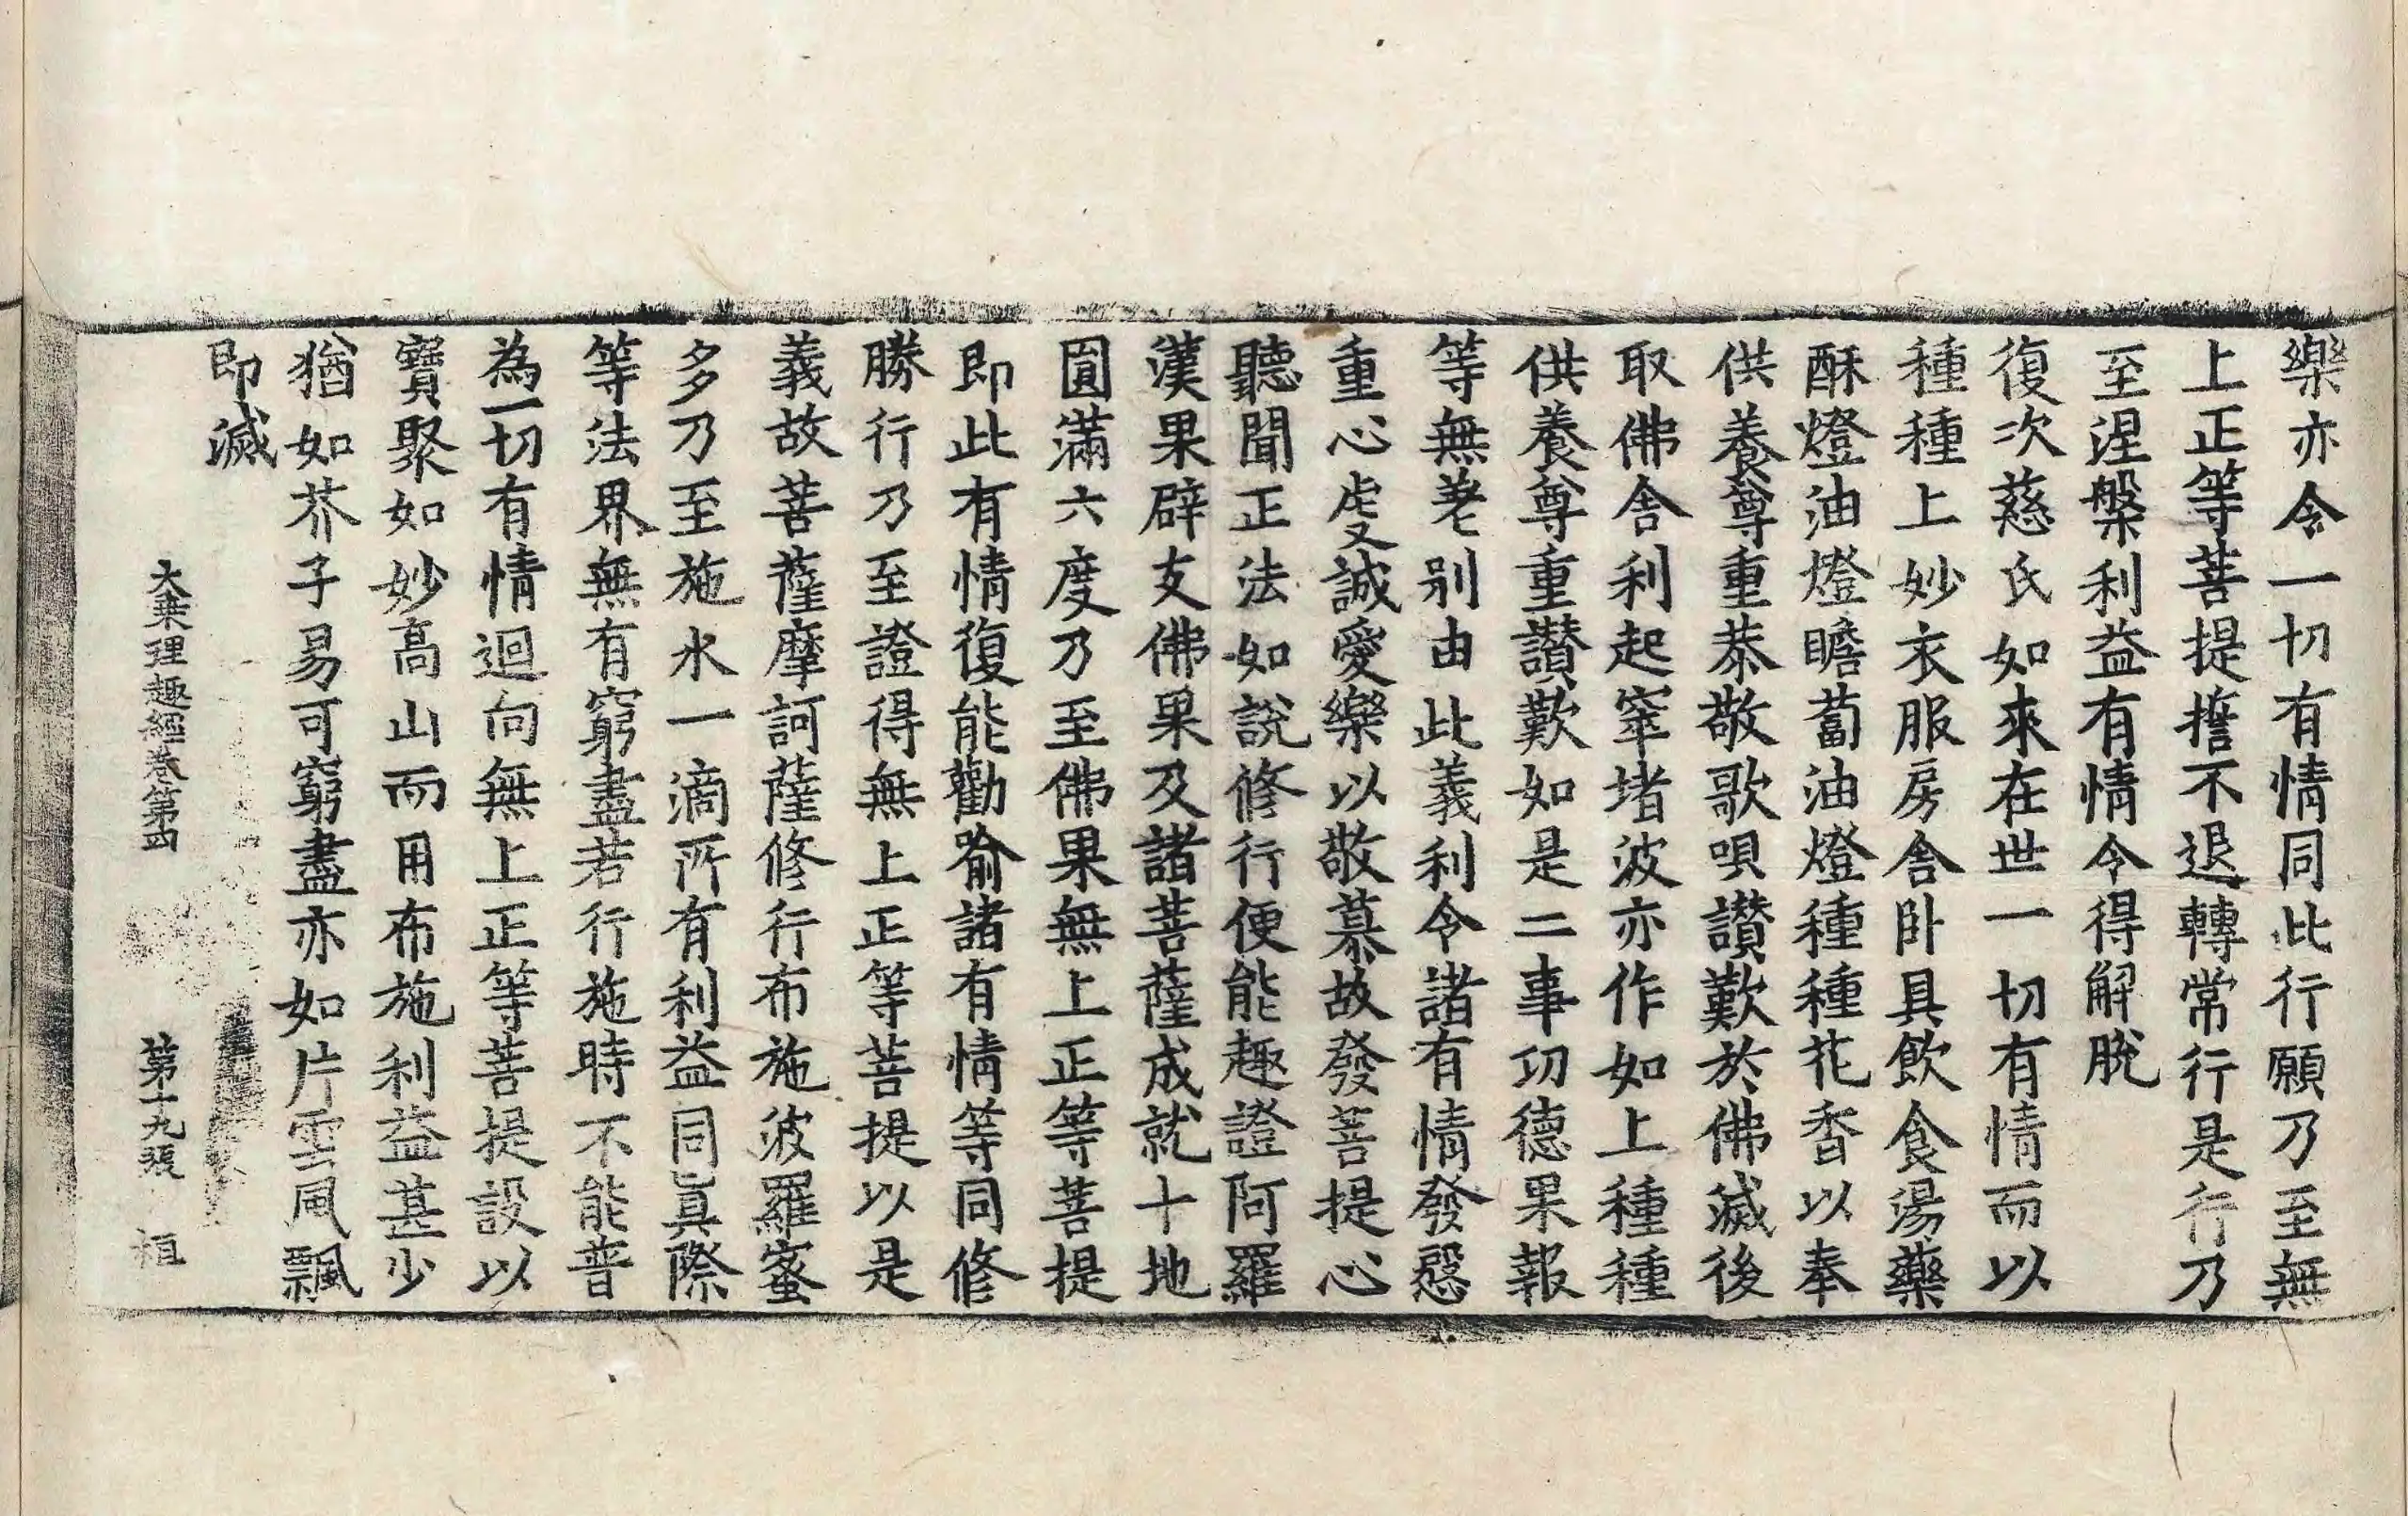 樂亦令一切有情同此行願乃至無
上正等菩提擔不退轉常行是行乃
至涅槃利益有情令得解脫
復次慈氏如來在世一切有情而以
種種上妙衣服房舍卧具飲食湯藥
酥燈油燈瞻蔔油燈種種花香以奉
供養尊重恭敬歌唄讃歎於佛滅後
取佛舍利起窣堵波亦作如上種種
供養尊重讃歎如是二事功德果報
等無差別由此義利令諸有情發慇
重心虔誠愛樂以敬慕故發菩提心
聽聞正法如說修行便能趣證阿羅
漢果辟支佛果及諸菩薩成就十地
圓滿六度乃至佛果無上正等菩提
即此有情復能勸喻諸有情等同修
勝行乃至證得無上正等菩提以是
義故菩薩摩訶薩修行布施波羅蜜
多乃至施水一滴所有利益同真際
等法界無有窮盡若行施時不能普
為一切有情迴向無上正等菩提設以
寶聚如妙高山而用布施利益甚少
猶如芥子易可窮盡亦如片雲風飄
即滅
大乗理趣經卷第四 第十九張 桓